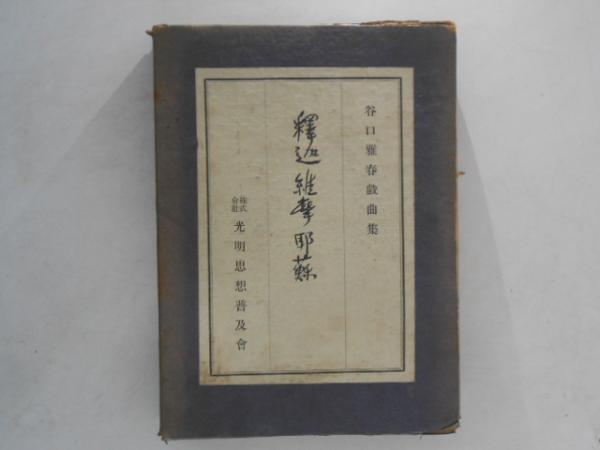 谷口雅春戯曲集
釋迦維摩耶蘇
株式会社 光明思想普及會